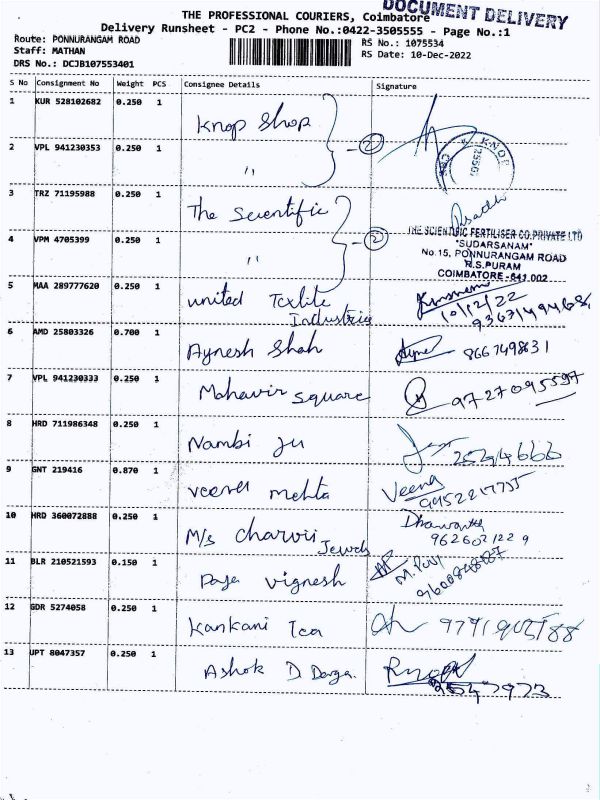 DOCUMENT DELIVERY
THE PROFESSIONAL COURIERS, Coimbatore
Delivery Runsheet - PC2 - Phone No.:0422-3505555 - Page No.:1
Route: PONNURANGAM ROAD
RS No.: 1075534
Staff: MATHAN
RS Date: 10-Dec-2022
DRS No.: DCJB107553401
S No Consignment No Weight PCS Consignee Details Signature
1 KUR 528102682 0.250 1 Knop Shop
2 VPL 941230353 0.250 1 " 2
KNOP
3 TRZ 71195988 0.250 1 The Scientific
4 VPM 4705399 0.250 1 " 2
THE SCIENTIFIC FERTILISER CO.PRIVATE LTD
"SUDARSANAM"
No.15, PONNURANGAM ROAD
R.S.PURAM
COIMBATORE-641 002
5 MAA 289777620 0.250 1 united Textile
Industries
10/12/22
6 AMD 25803326 0.700 1 Aynesh Shah 8667498631
7 VPL 941230333 0.250 1 Mahavir Square 9727095597
8 HRD 711986348 0.250 1 Nambi Ju
9 GNT 219416 0.870 1 veena mehta Veena
9952217755
10 HRD 360072888 0.250 1 M/s Charvii
Jewels
9626021229
11 BLR 210521593 0.150 1 vignesh
12 GDR 5274058 0.250 1 Kankani Tea
13 UPT 8047357 0.250 1 Ashok D. Darga.